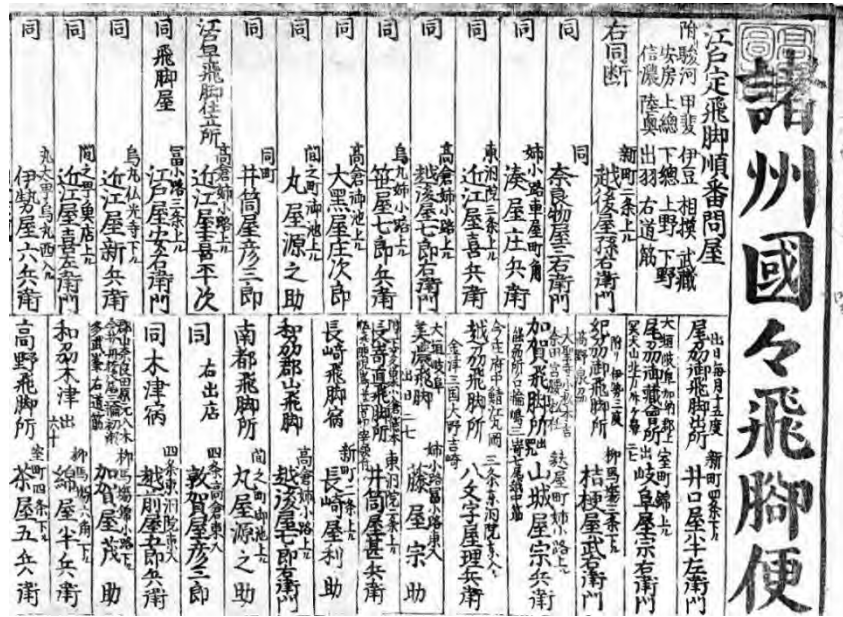 諸州國々飛脚便
江戸定飛脚順番問屋
附 駿河 甲斐 伊豆 相摸 武藏
安房 上總 下總 上野 下野
信濃 陸奥 出羽 右道筋
右同断
新町二条上ル
越後屋孫右衛門
同
奈良物屋三右衛門
同
姉小路車屋町角
湊屋庄兵衛
同
東洞院三条上ル
近江屋喜兵衛
同
高倉姉小路上ル
越後屋七郎右衛門
同
烏丸姉小路上ル
笹屋七郎兵衛
同
高倉御池上ル
大黒屋庄次郎
同
間之町御池上ル
丸屋源之助
同
同町
井筒屋彦三郎
江戸早飛脚仕立所
高倉姉小路上ル
近江屋喜平次
同 飛脚屋
冨小路三条上ル
江戸屋安右衛門
同
烏丸仏光寺下ル
近江屋新兵衛
同
間之町魚店上ル
近江屋喜左衛門
同
丸太町烏丸西入
伊勢屋六兵衛
出日毎月十五度
尾刕御飛脚出所
新町四条下ル
井口屋半左衛門
大垣 岐阜 加納 郡上
尾刕御藏會所
出二七
室町錦上ル
岐阜屋宗右衛門
附リ 伊勢二度
高野 泉刕
紀刕御飛脚所
柳馬場三条下ル
桔梗屋武右衛門
加賀飛脚所
麸屋町姉小路上ル
山城屋宗兵衛
金津 三国 大野 吉崎
越刕飛脚所
三条東洞院東入
八文字屋理兵衛
大垣 岐阜
美濃飛脚
出日二七
姉小路冨小路東入
藤屋宗助
長嵜直飛脚所
東洞院三条上ル
井筒屋甚兵衛
長﨑飛脚宿
新町二条上ル
長﨑屋利助
和刕郡山飛脚
高倉姉小路上ル
越後屋七郎右衛門
南都飛脚所
間之町御池上ル
丸屋源之助
同 右出店
四条高倉東入
敦賀屋彦三郎
同木津宿
四条東洞院東入
越前屋五郎兵衛
多武峯右道筋
柳馬場錦小路下ル
加賀屋茂助
和刕木津
出六十
柳馬場六角下ル
綿屋半兵衛
高野飛脚所
室町四条下ル
茶屋五兵衛